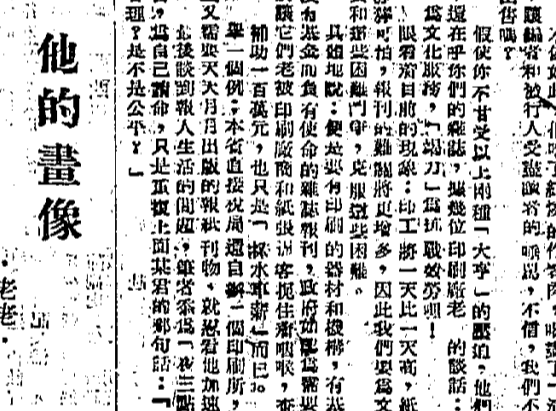 讓編者和發行人受盡讀者的唾罵，不信，我們不
出售嗎？
假使你不甘受以上兩種「大亨」的壓迫，他們
還在乎你們的雜誌，據幾位印刷廠老 的談話：
為文化服務，「竭力」為抗戰效勞呀！
眼看着目前的現象：印工將一天比一天高，紙
可怕，報刊的難關將更增多，因此我們要為文
和那些困難鬥爭，克服這些困難。
具體地說：便是要有印刷的器材和機構，有基
沒有基金而負有使命的雜誌報刊，政府如單為需要
讓它們老被印刷廠商和紙張掮客扼住着咽喉，
補助一百萬元，也只是「杯水車薪」而已。
舉一個例：本省直接稅局還自辦一個印刷所，
又需要天天月月出版的報紙刊物，就忍看他加速
最後談到報人生活的問題，筆者忝為「夜三點
，為自己請命，只是重複上面某君的那句話：「
理？是不是公平？」
他的畫像
·老老·